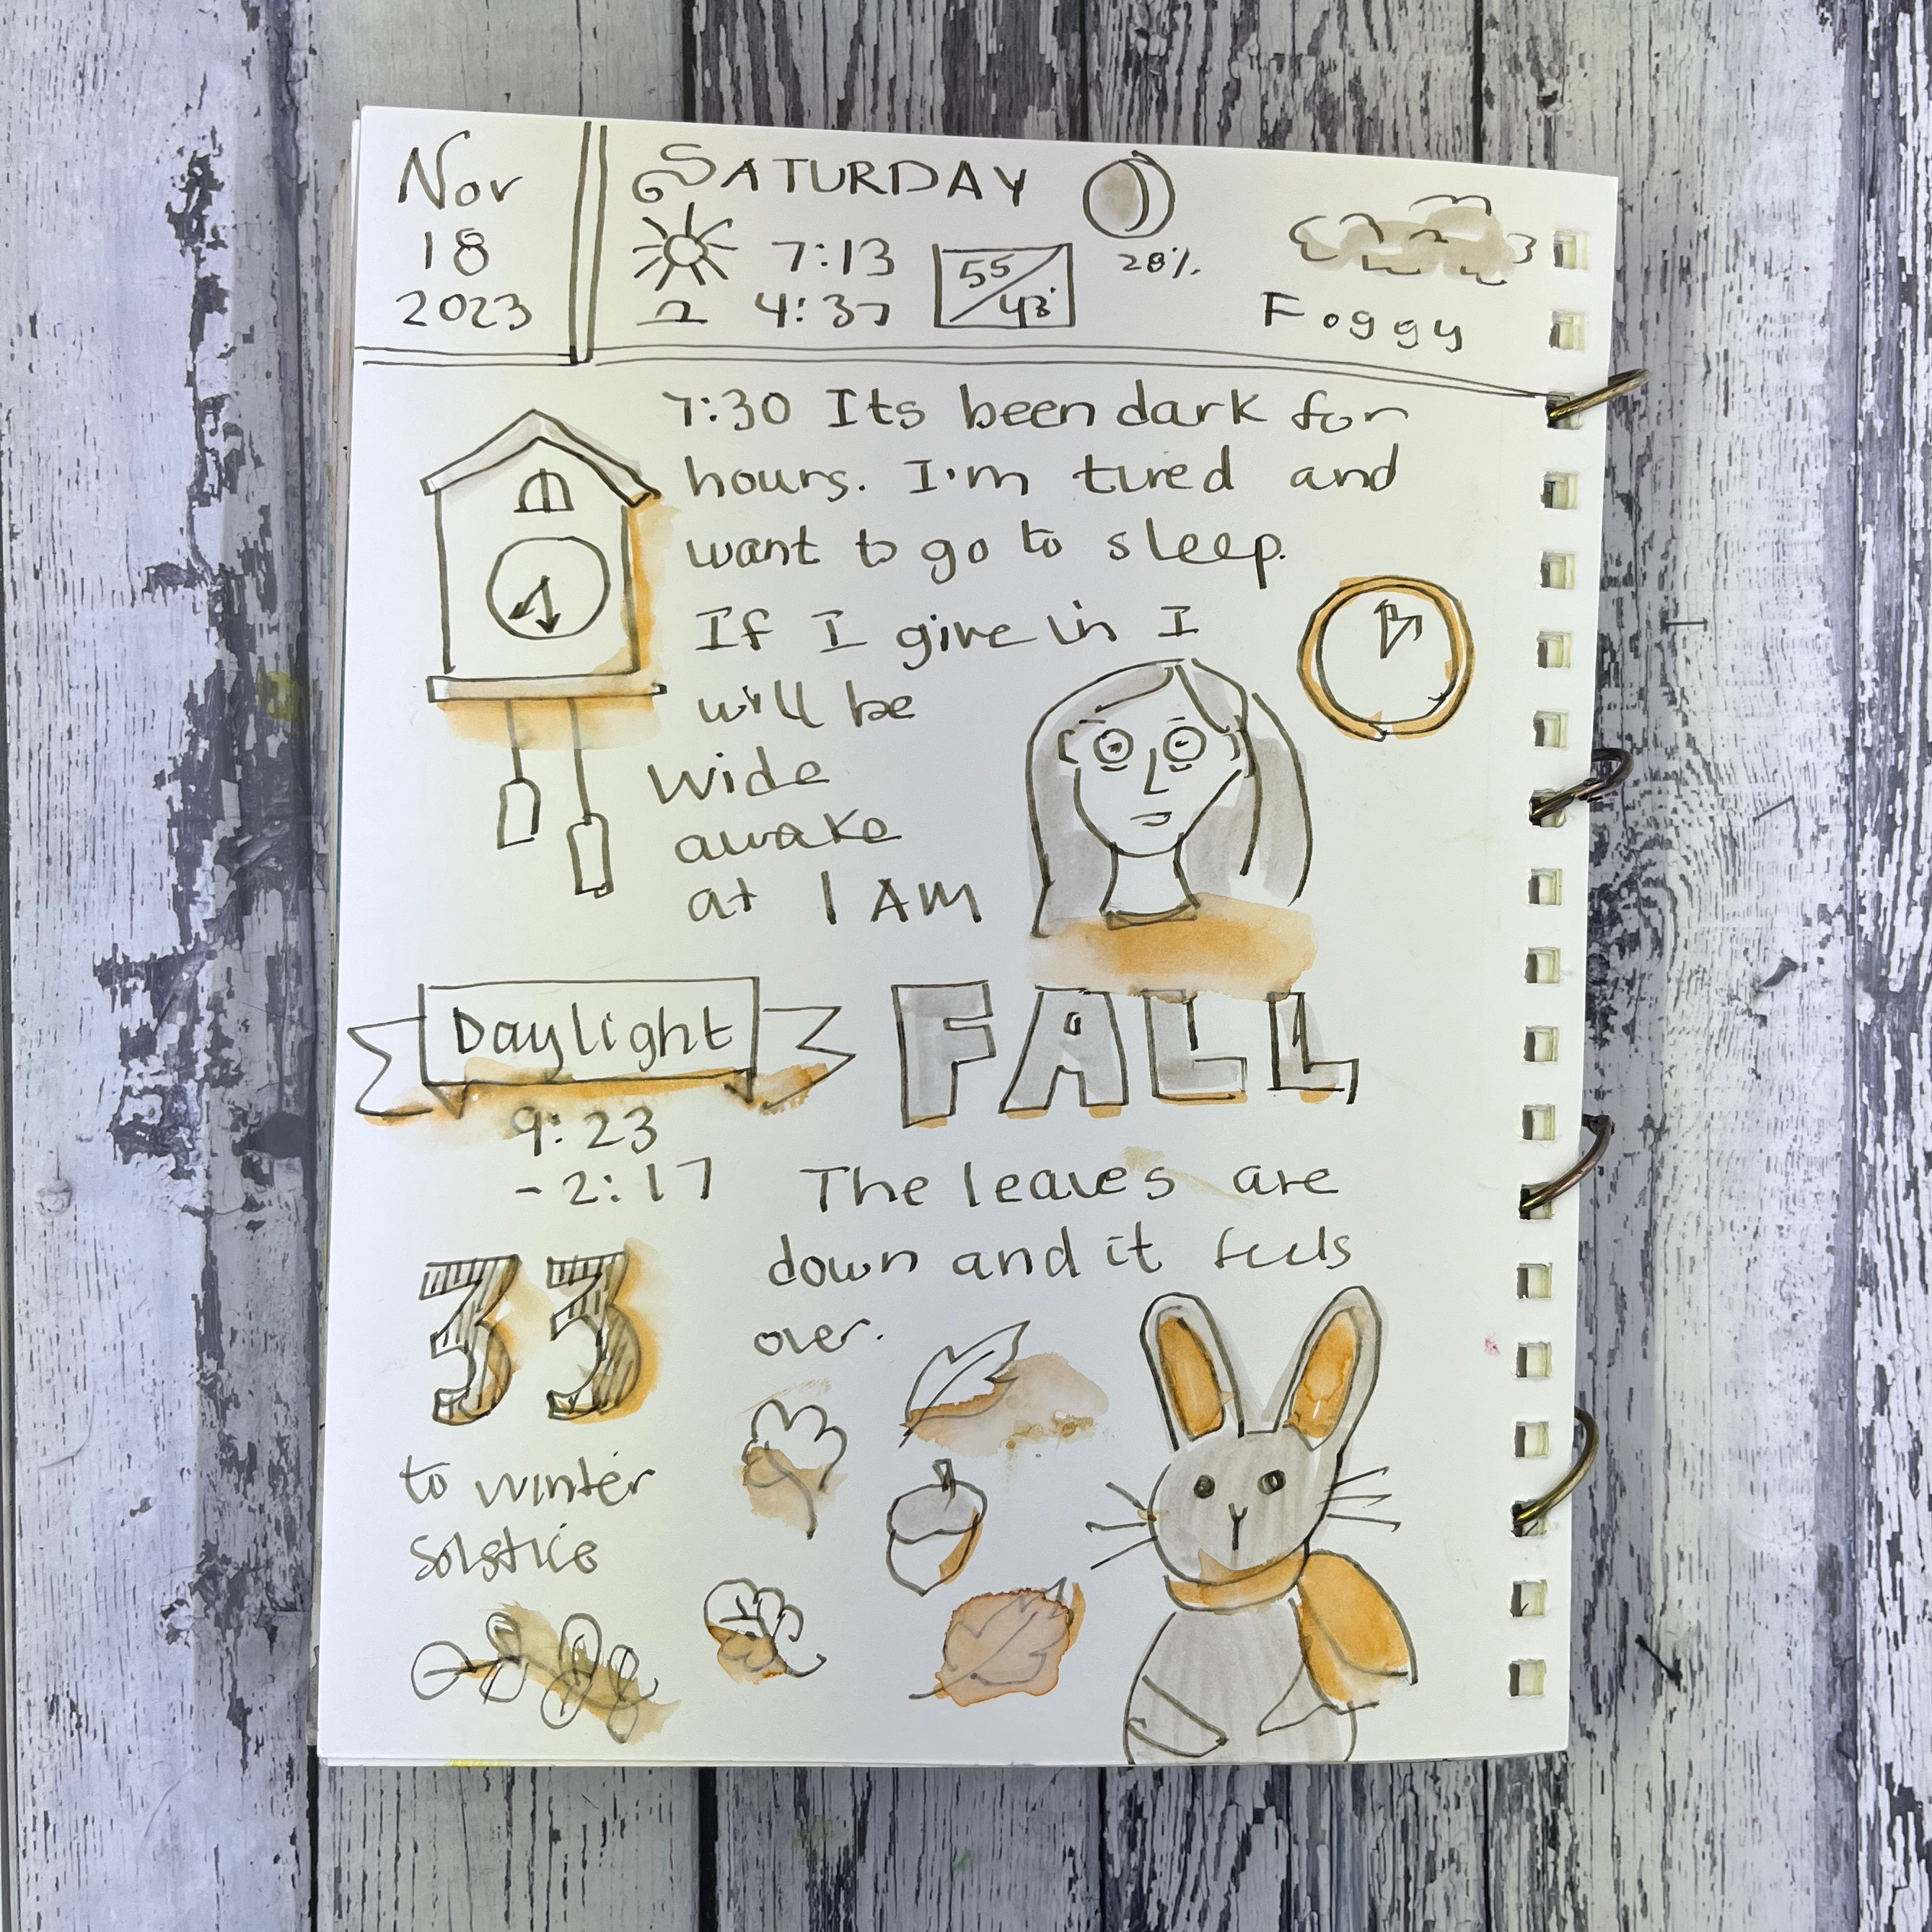 Nov
18
2023
SATURDAY
7:13
4:37
55/43°
28%
Foggy
7:30 Its been dark for
hours. I'm tired and
want to go to sleep.
If I give in I
will be
wide
awake
at 1 AM
Daylight
9:23
-2:17
FALL
The leaves are
down and it feels
over.
33
to winter
solstice